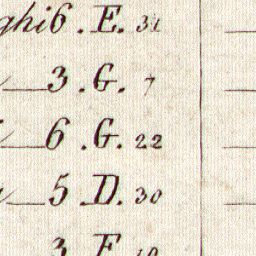 ghi 6 . E. 31
3 . G. 7
6 . G. 22
5 . D. 30
3 . E. 10